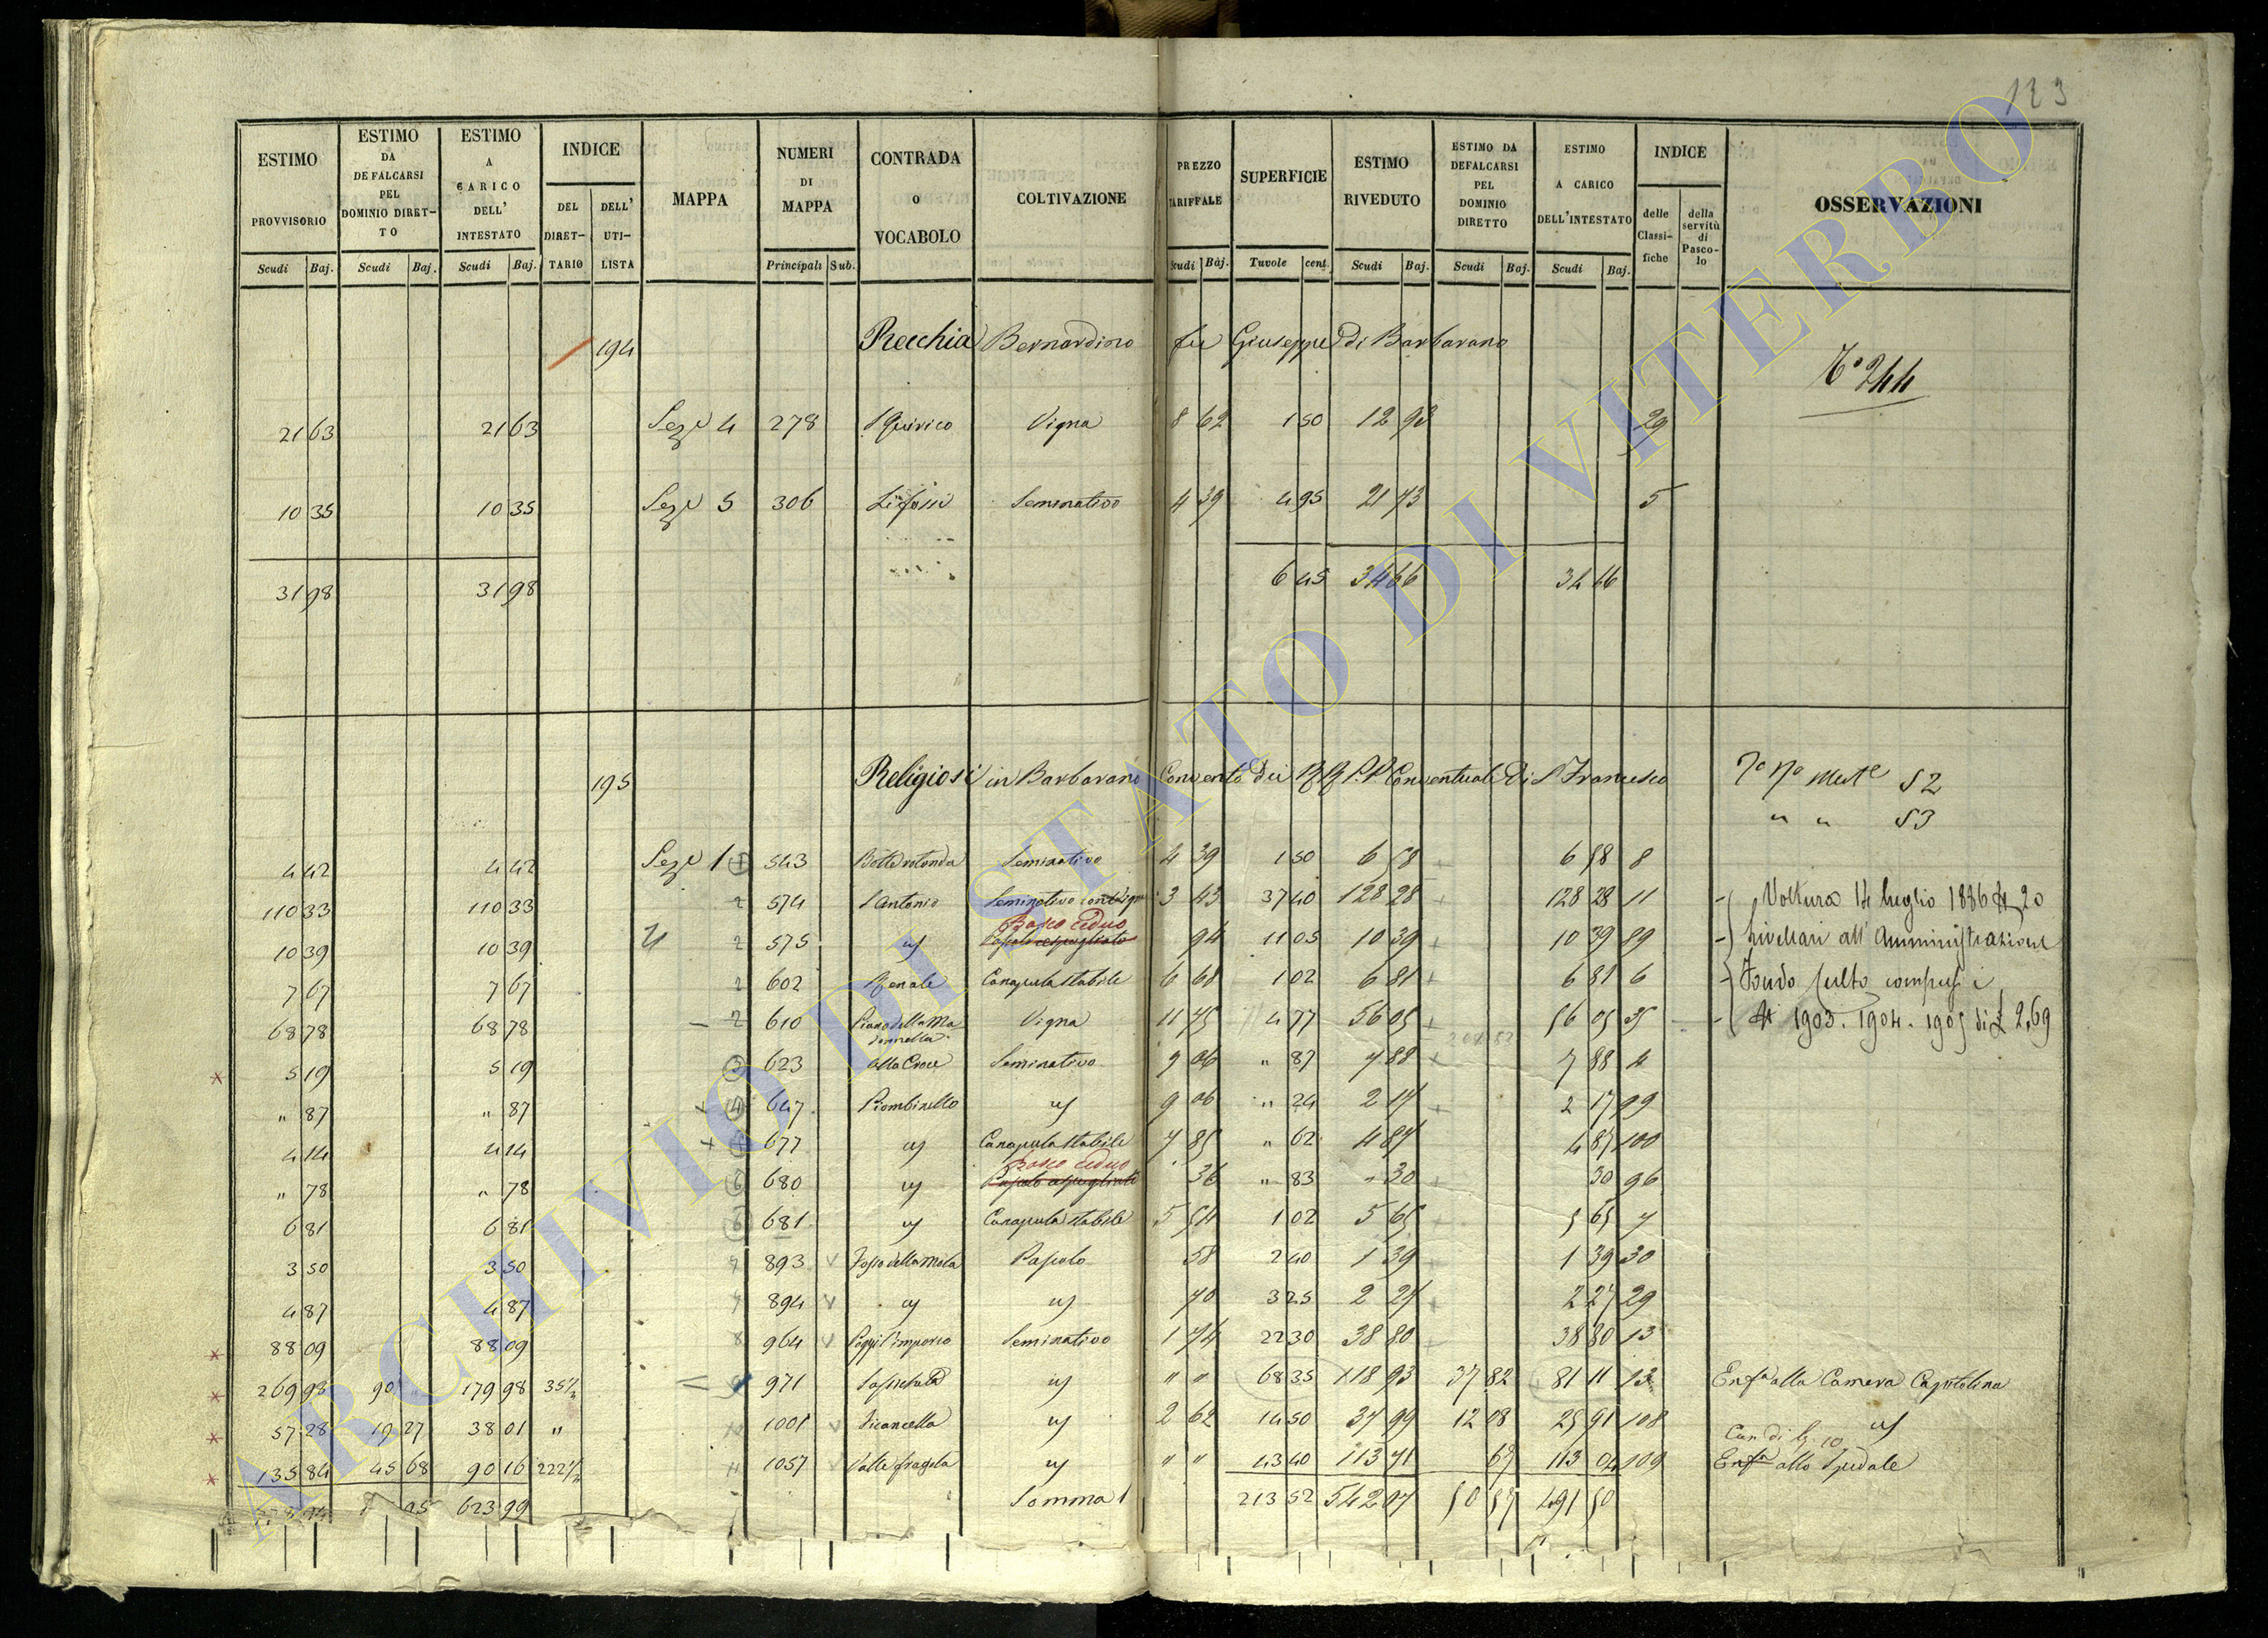 123
ESTIMO PROVVISORIO | ESTIMO DA DEFALCARSI PEL DOMINIO DIRETTO | ESTIMO A CARICO DELL' INTESTATO | INDICE DEL DIRETTARIO | DELL' UTILISTA | MAPPA | NUMERI DI MAPPA | CONTRADA o VOCABOLO | COLTIVAZIONE | PREZZO TARIFFALE | SUPERFICIE | ESTIMO RIVEDUTO | ESTIMO DA DEFALCARSI PEL DOMINIO DIRETTO | ESTIMO A CARICO DELL'INTESTATO | INDICE delle Classifiche | della servitù di Pascolo | OSSERVAZIONI
Scudi Baj. | Scudi Baj. | Scudi Baj. | Principali Sub. | Scudi Baj. | Tavole cent. | Scudi Baj. | Scudi Baj. | Scudi Baj.
194 Recchia Bernardino fu Giuseppe di Barbarano
N° 244
21 63 | 21 63 | Sez.e 4 | 278 | S Quirico | Vigna | 8 62 | 1 50 | 12 93 | 29
10 35 | 10 35 | Sez.e 5 | 306 | Li fossi | Seminativo | 4 39 | 4 95 | 21 73 | 5
31 98 | 31 98 | 6 45 | 34 66 | 34 66
195 Religiosi in Barbarano Convento dei RR PP Conventuali di S Francesco
52
" " 53
4 42 | 4 42 | Sez.e 1 | 543 | Botte rotonda | Seminativo | 4 39 | 1 50 | 6 58 | 6 58 | 8
110 33 | 110 33 | 2 | 574 | S Antonio | Seminativo | 3 43 | 37 40 | 128 28 | 128 28 | 11 | Voltura 14 luglio 1886 N 20
Bosco ceduo
10 39 | 10 39 | 2 | 575 | id | Pascolo cespugliato | 94 | 11 05 | 10 39 | 10 39 | 89 | Livellari all' Amministrazione
7 67 | 7 67 | 2 | 602 | Renale | Canapula stabile | 6 68 | 1 02 | 6 81 | 6 81 | 6 | Fondo Culto compresi i
68 78 | 68 78 | 2 | 610 | Piano della Madonnella | Vigna | 11 75 | 4 77 | 56 05 | 56 05 | 35 | 1903. 1904. 1905 di £ 2,69
5 19 | 5 19 | 623 | Alla Croce | Seminativo | 9 06 | " 87 | 7 88 | 7 88 | 4
" 87 | " 87 | 647 | Piombinello | id | 9 06 | " 24 | 2 17 | 2 17 | 99
4 14 | 4 14 | 677 | id | Canapula stabile | 7 85 | " 62 | 4 87 | 4 87 | 100
Bosco ceduo
" 78 | " 78 | 6 | 680 | id | Pascolo cespugliato | 36 | " 83 | " 30 | 30 | 96
6 81 | 6 81 | 6 | 681 | id | Canapula stabile | 5 54 | 1 02 | 5 65 | 5 65 | 7
3 50 | 3 50 | 7 | 893 | Fosso della Mola | Pascolo | 58 | 2 40 | 1 39 | 1 39 | 30
4 87 | 4 87 | 7 | 894 | id | id | 70 | 3 25 | 2 27 | 2 27 | 29
88 09 | 88 09 | 8 | 964 | Seminativo | 1 74 | 22 30 | 38 80 | 38 80 | 13
269 98 | 90 " | 179 98 | 35 1/2 | 971 | id | " " | 68 35 | 118 93 | 37 82 | 81 11 | 13 | Enf.a alla Camera Capitolina
57 28 | 19 27 | 38 01 | " | 1001 | Vicancella | id | 2 62 | 14 50 | 37 99 | 12 08 | 25 91 | 108 | id
135 84 | 45 68 | 90 16 | 222 1/2 | 11 | 1057 | Valle fragola | id | " " | 43 40 | 113 71 | 67 | 113 04 | 109 | Enf.a allo Spedale
95 | 623 99 | Somma | 213 52 | 542 07 | 50 57 | 491 50
ARCHIVIO DI STATO DI VITERBO